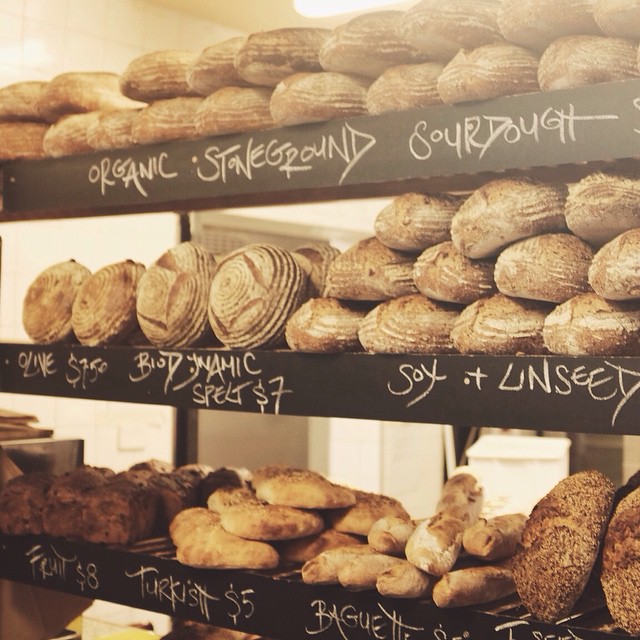 ORGANIC · STONEGROUND SOURDOUGH
OLIVE $7.50 BIODYNAMIC
SPELT $7
SOY + LINSEED
FRUIT $8 TURKISH $5 BAGUETTE